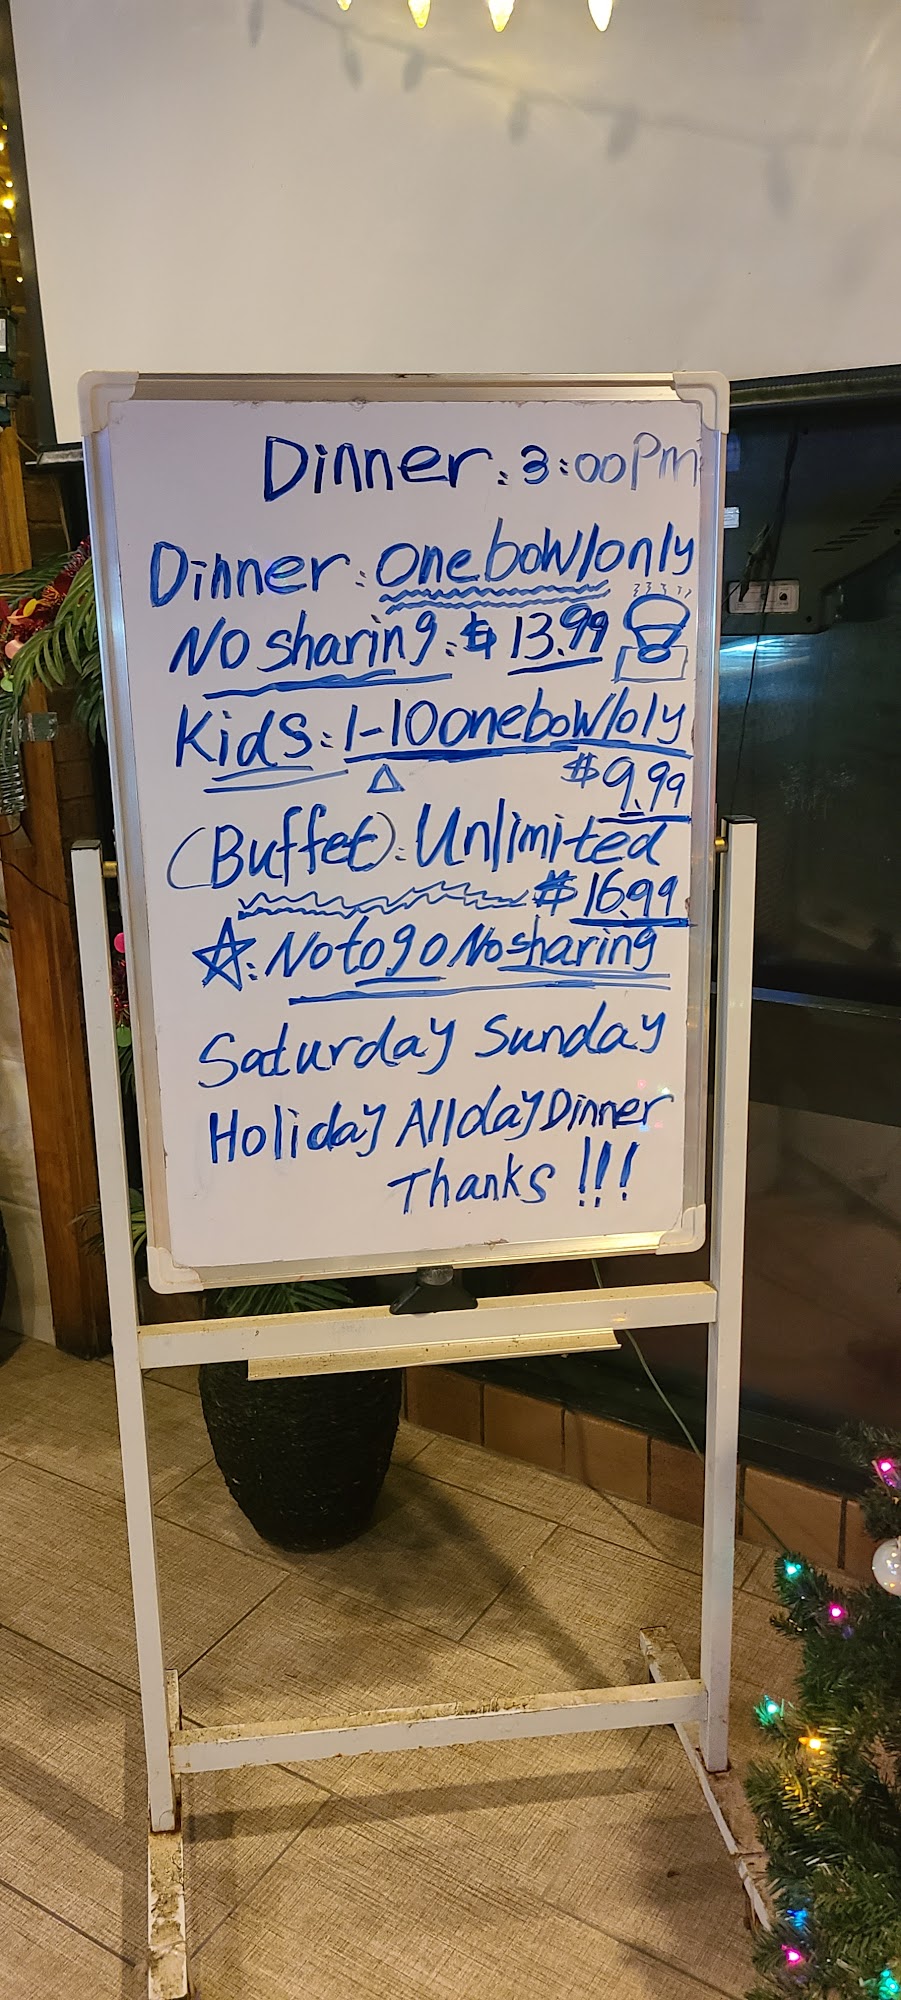 Dinner: 3:00Pm
Dinner: one bowl only
No sharing: $13.99
Kids: 1-10 one bowl oly
$9.99
(Buffet): Unlimited
$16.99
☆: No to go No sharing
Saturday Sunday
Holiday All day Dinner
Thanks !!!